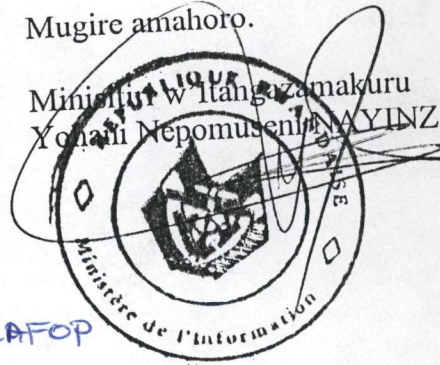 Mugire amahoro.
Minisitiri w'Itangazamakuru
Yohani Nepomuseni NAYINZ
REPUBLIQUE RWANDAISE
Ministère de l'Information